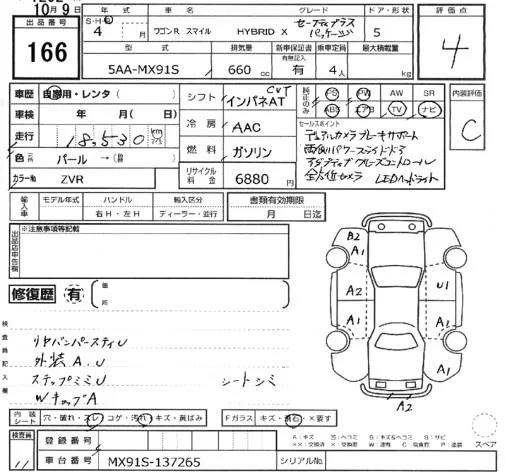 10月9日
出品番号
166
年式
車名
グレード
ドア・形状
評価点
S・H・R
4 月
ワゴンR スマイル
HYBRID X
セーフティプラス
パッケージ
5
4
型式
排気量
新車保証書
有無記入
乗車定員
最大積載量
5AA-MX91S
660 cc
有
4人
kg
車歴
自家用・レンタ( )
車検
年 月( )日
走行
18,530 km
色
パール → ( )
カラーNo
ZVR
シフト
CVT
インパネAT
冷房
AAC
燃料
ガソリン
リサイクル
料金
6880 円
純正のみ
PS PW AW SR
ABS エアB TV ナビ
内装評価
C
セールスポイント
デュアルカメラブレーキサポート
両側パワースライドドア
アダプティブクルーズコントロール
全方位カメラ LEDヘッドライト
輸入車
モデル年式
ハンドル
右H・左H
輸入区分
ディーラー・並行
書類有効期限
月 日迄
出品店申告欄
※注意事項等記載
修復歴
有
箇所
検査員記入欄
リヤバンパースティU
外装A.U
ステップミミU
WチップA
シートシミ
A2
B2
A1
A1
A2
A1
A1
U1
A1
A2
内装
シート
穴・破れ・スレ
コゲ・汚れ
キズ・黄ばみ
Fガラス
キズ・飛石・×要す
検査員
11
登録番号
車台番号
MX91S-137265
シリアルNo.
A:キズ U:ヘコミ B:キズ&ヘコミ S:サビ
××:交換済 ×:要交換 W:波有 C:腐食 P:塗装
スペア